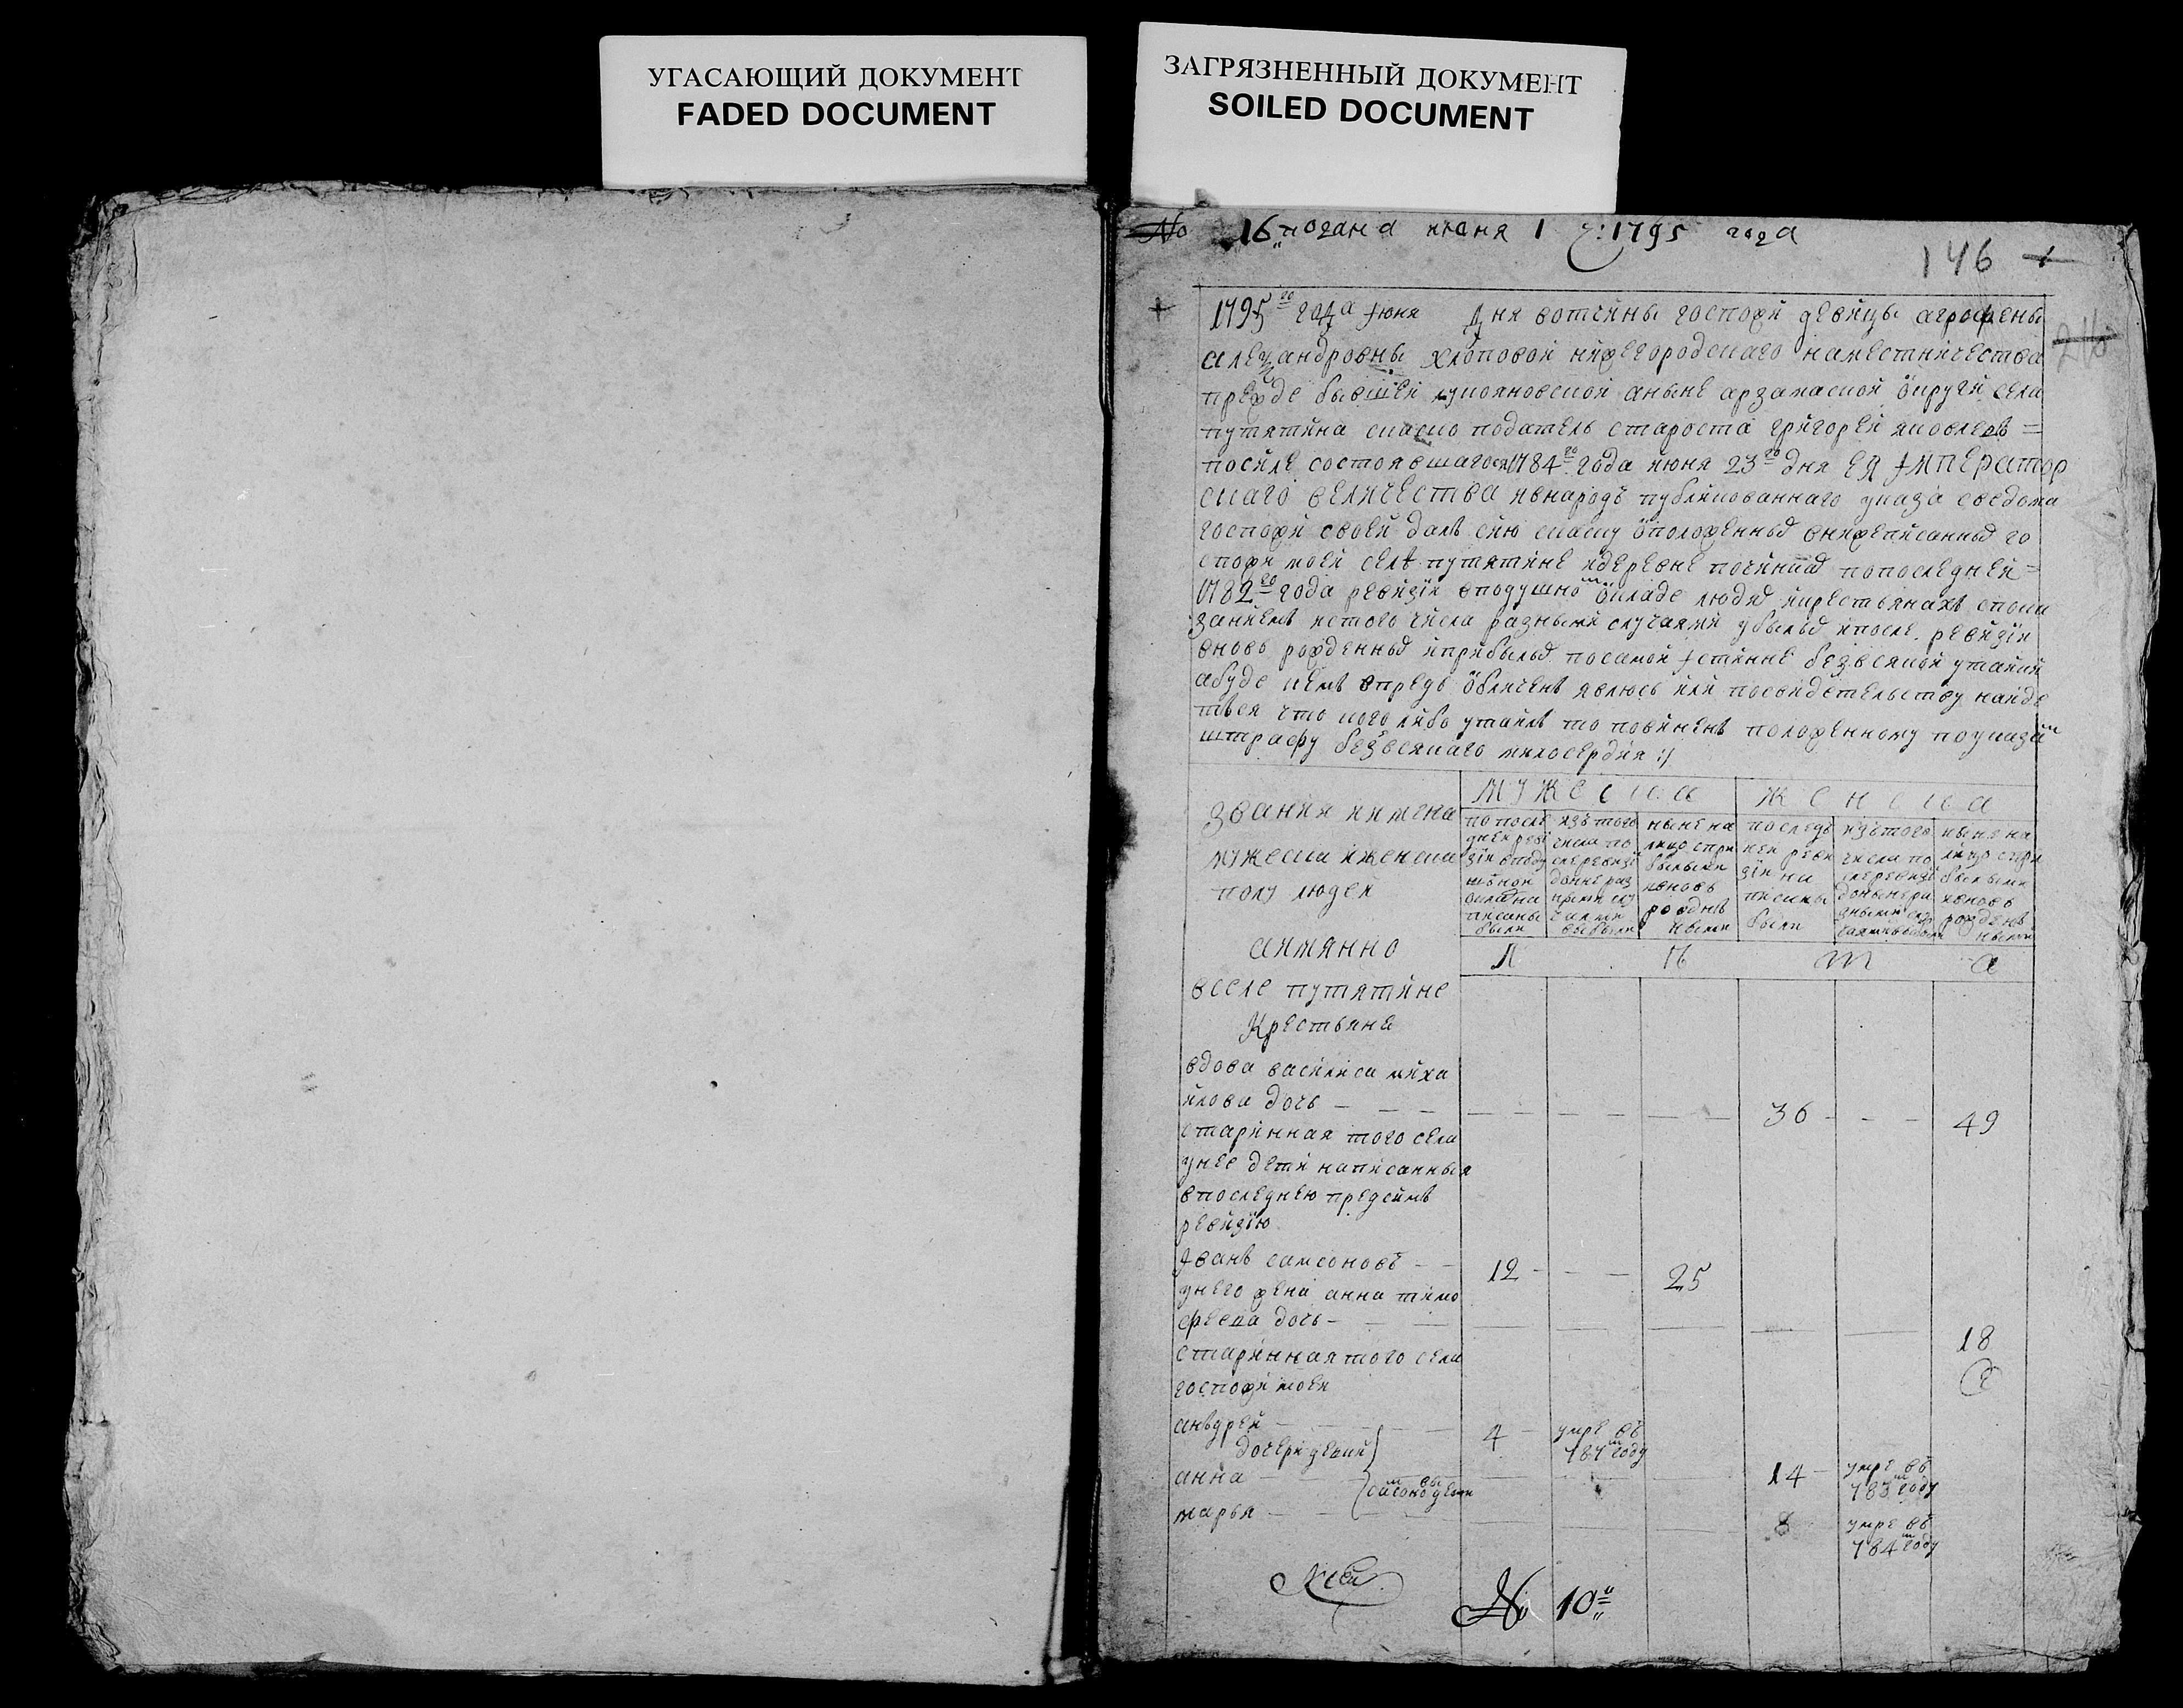 УГАСАЮЩИЙ ДОКУМЕНТ
FADED DOCUMENT
ЗАГРЯЗНЕННЫЙ ДОКУМЕНТ
SOILED DOCUMENT
№ 16 подана июня 1 ч: 1795 года
146
1795го года июня дня вотчины госпожи девицы аграфены
александровны хлоповой нижегородскаго наместничества
прежде бывшей лукояновской аныне арзамаской округи села
путятина скаско податель староста григорей яковлевъ =
посиле состоявшагося 1784го года июня 23го дня ЕЯ iмператор
скаго величества ивнародъ публикованнаго указа сведома
госпожи своей далъ сию скаску ōположенныхъ внижеписанныхъ го
спожи моей селѣ путятине идеревне починкахъ попоследней =
1782го года ревизiи вподушномъ ōкладе людяхъ икрестьянахъ спока
заниемъ истого числа разными случаями убылыхъ ипосле ревизiи
вновь рожденныхъ иприбылыхъ посамой iстинне безвсякой утайки
абуде кемъ впредь ōбличенъ явлюсь или посвидетельству найде
ться что кого либо утаилъ то повиненъ положенному поуказамъ
штрафу безъвсякаго милосердия :/
звания имена
мужеска иженска
полу людей
аимянно
мужеска
женска
попосле
дней реви
зiи вподу
шной
окладна
писаны
были
изътого
числа по
слеревизi
доннераз
ными слу
чаями
выбыли
ныне на
лицо спри
былыми
ивновь
рождеъ
ными
последъ
ней реви
зiи на
писаны
были
изътого
числа по
слеревизi
донынера
зными слу
чаямивыбыли
ныне на
лицо спри
былыми
ивновь
рожденъ
ными
л ѣ т а
вселе путятине
Крестьяне
вдова василиса миха
илова дочь — — — 36 — — 49
старинная того села
унее дети написанныя
впоследнею предсимъ
ревизiю
iванъ самсоновъ — — 12 — — — 25
унего жена анна тимо
феева дочь — — — 18
стариннаятого села
госпожи моей
анъдрей — — 4 умре въ
787м году
анна — — 14 умре въ
783м году
марья — — 8 умре въ
784м году
№ 10